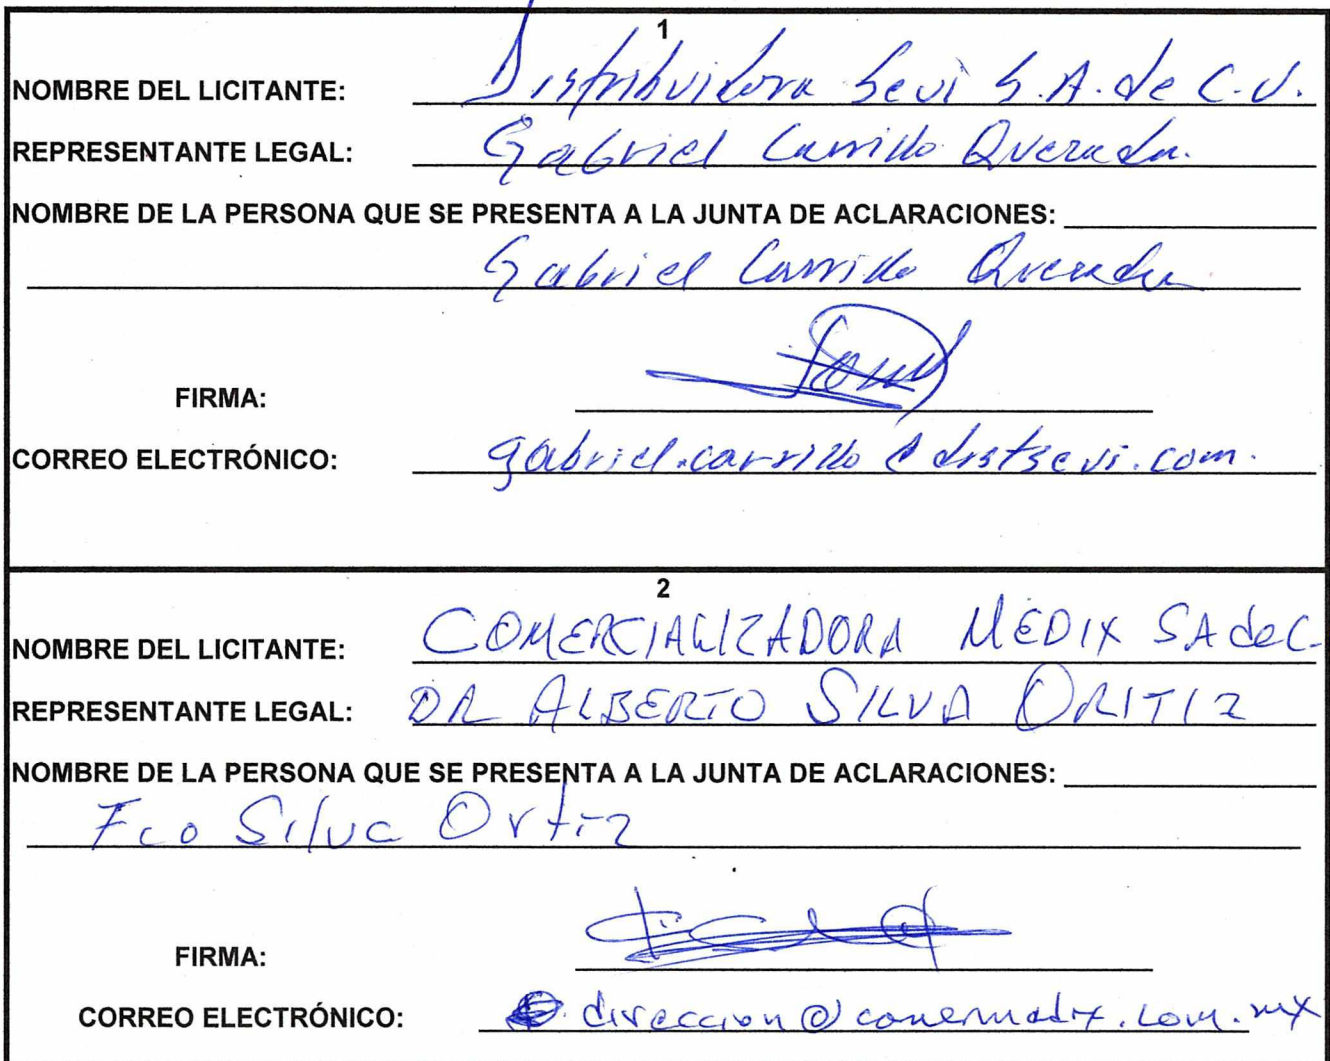 1
NOMBRE DEL LICITANTE: Distribuidora Sevi S.A. de C.V.
REPRESENTANTE LEGAL: Gabriel Carrillo Querada.
NOMBRE DE LA PERSONA QUE SE PRESENTA A LA JUNTA DE ACLARACIONES:
Gabriel Carrillo Querada
FIRMA:
CORREO ELECTRÓNICO: gabriel.carrillo@distsevi.com.
2
NOMBRE DEL LICITANTE: COMERCIALIZADORA MEDIX SA de C.
REPRESENTANTE LEGAL: DR ALBERTO SILVA ORITIZ
NOMBRE DE LA PERSONA QUE SE PRESENTA A LA JUNTA DE ACLARACIONES:
Fco Silva Ortiz
FIRMA:
CORREO ELECTRÓNICO: direccion@comermedix.com.mx